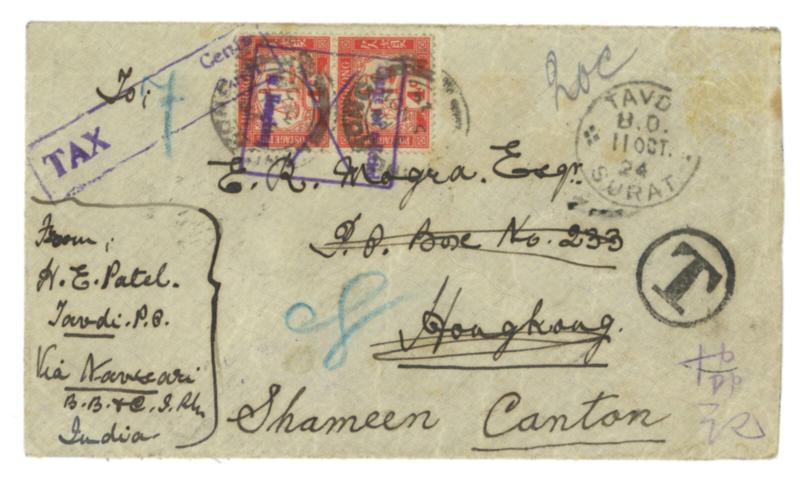 To;
7
TAX
Cents
20c
TAVD
B.O.
11 OCT.
24
SURAT
E. R. Mogra. Esqr.
P.O. Box No. 233
Hongkong.
Shameen Canton
T
From;
H. E. Patel.
Tavdi. P.O.
Via Navsari
B.B. & C. I. Rly
India